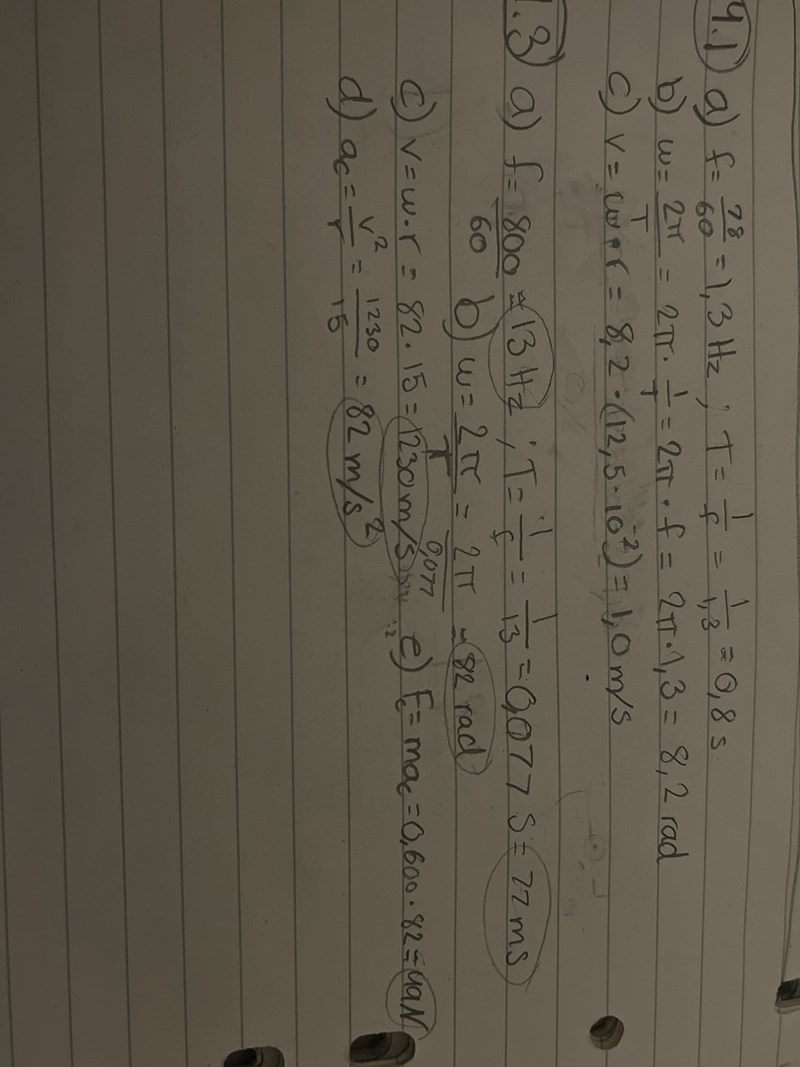 4.1) a) f = 78/60 = 1,3 Hz ; T = 1/f = 1/1,3 = 0,8 s
b) ω = 2π/T = 2π · 1/T = 2π · f = 2π · 1,3 = 8,2 rad
c) v = ω · r = 8,2 · (12,5 · 10⁻²) = 1,0 m/s
.3) a) f = 800/60 = 13 Hz ; T = 1/f = 1/13 = 0,077 s = 77 ms
b) ω = 2π/T = 2π/0,077 = 82 rad
c) v = ω · r = 82 · 15 = 1230 m/s e) Fc = mac = 0,600 · 82 = 49N
d) ac = v²/r = 1230/15 = 82 m/s²